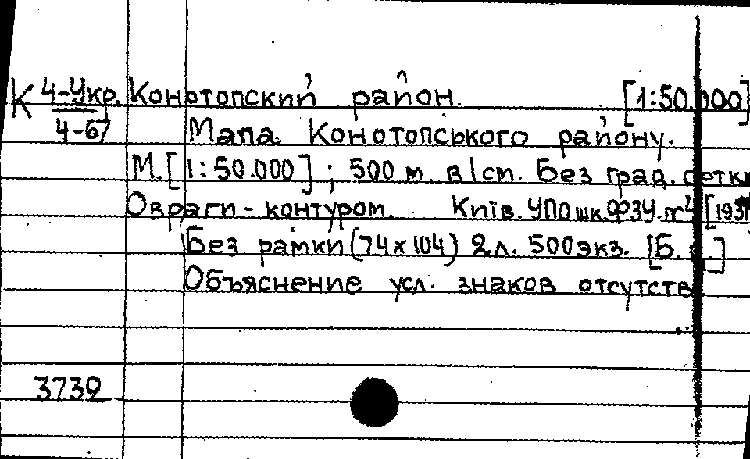 К 4-Укр. Конотопский район. [1:50.000]
4-67 Мапа Конотопського району.
М.[1:50.000]; 500 м. в 1 см. Без град. сетки
Овраги-контуром. Київ.
Без рамки (74 х 104) 2 л. 500 экз. [Б.
Объяснение усл. знаков отсутств
3739